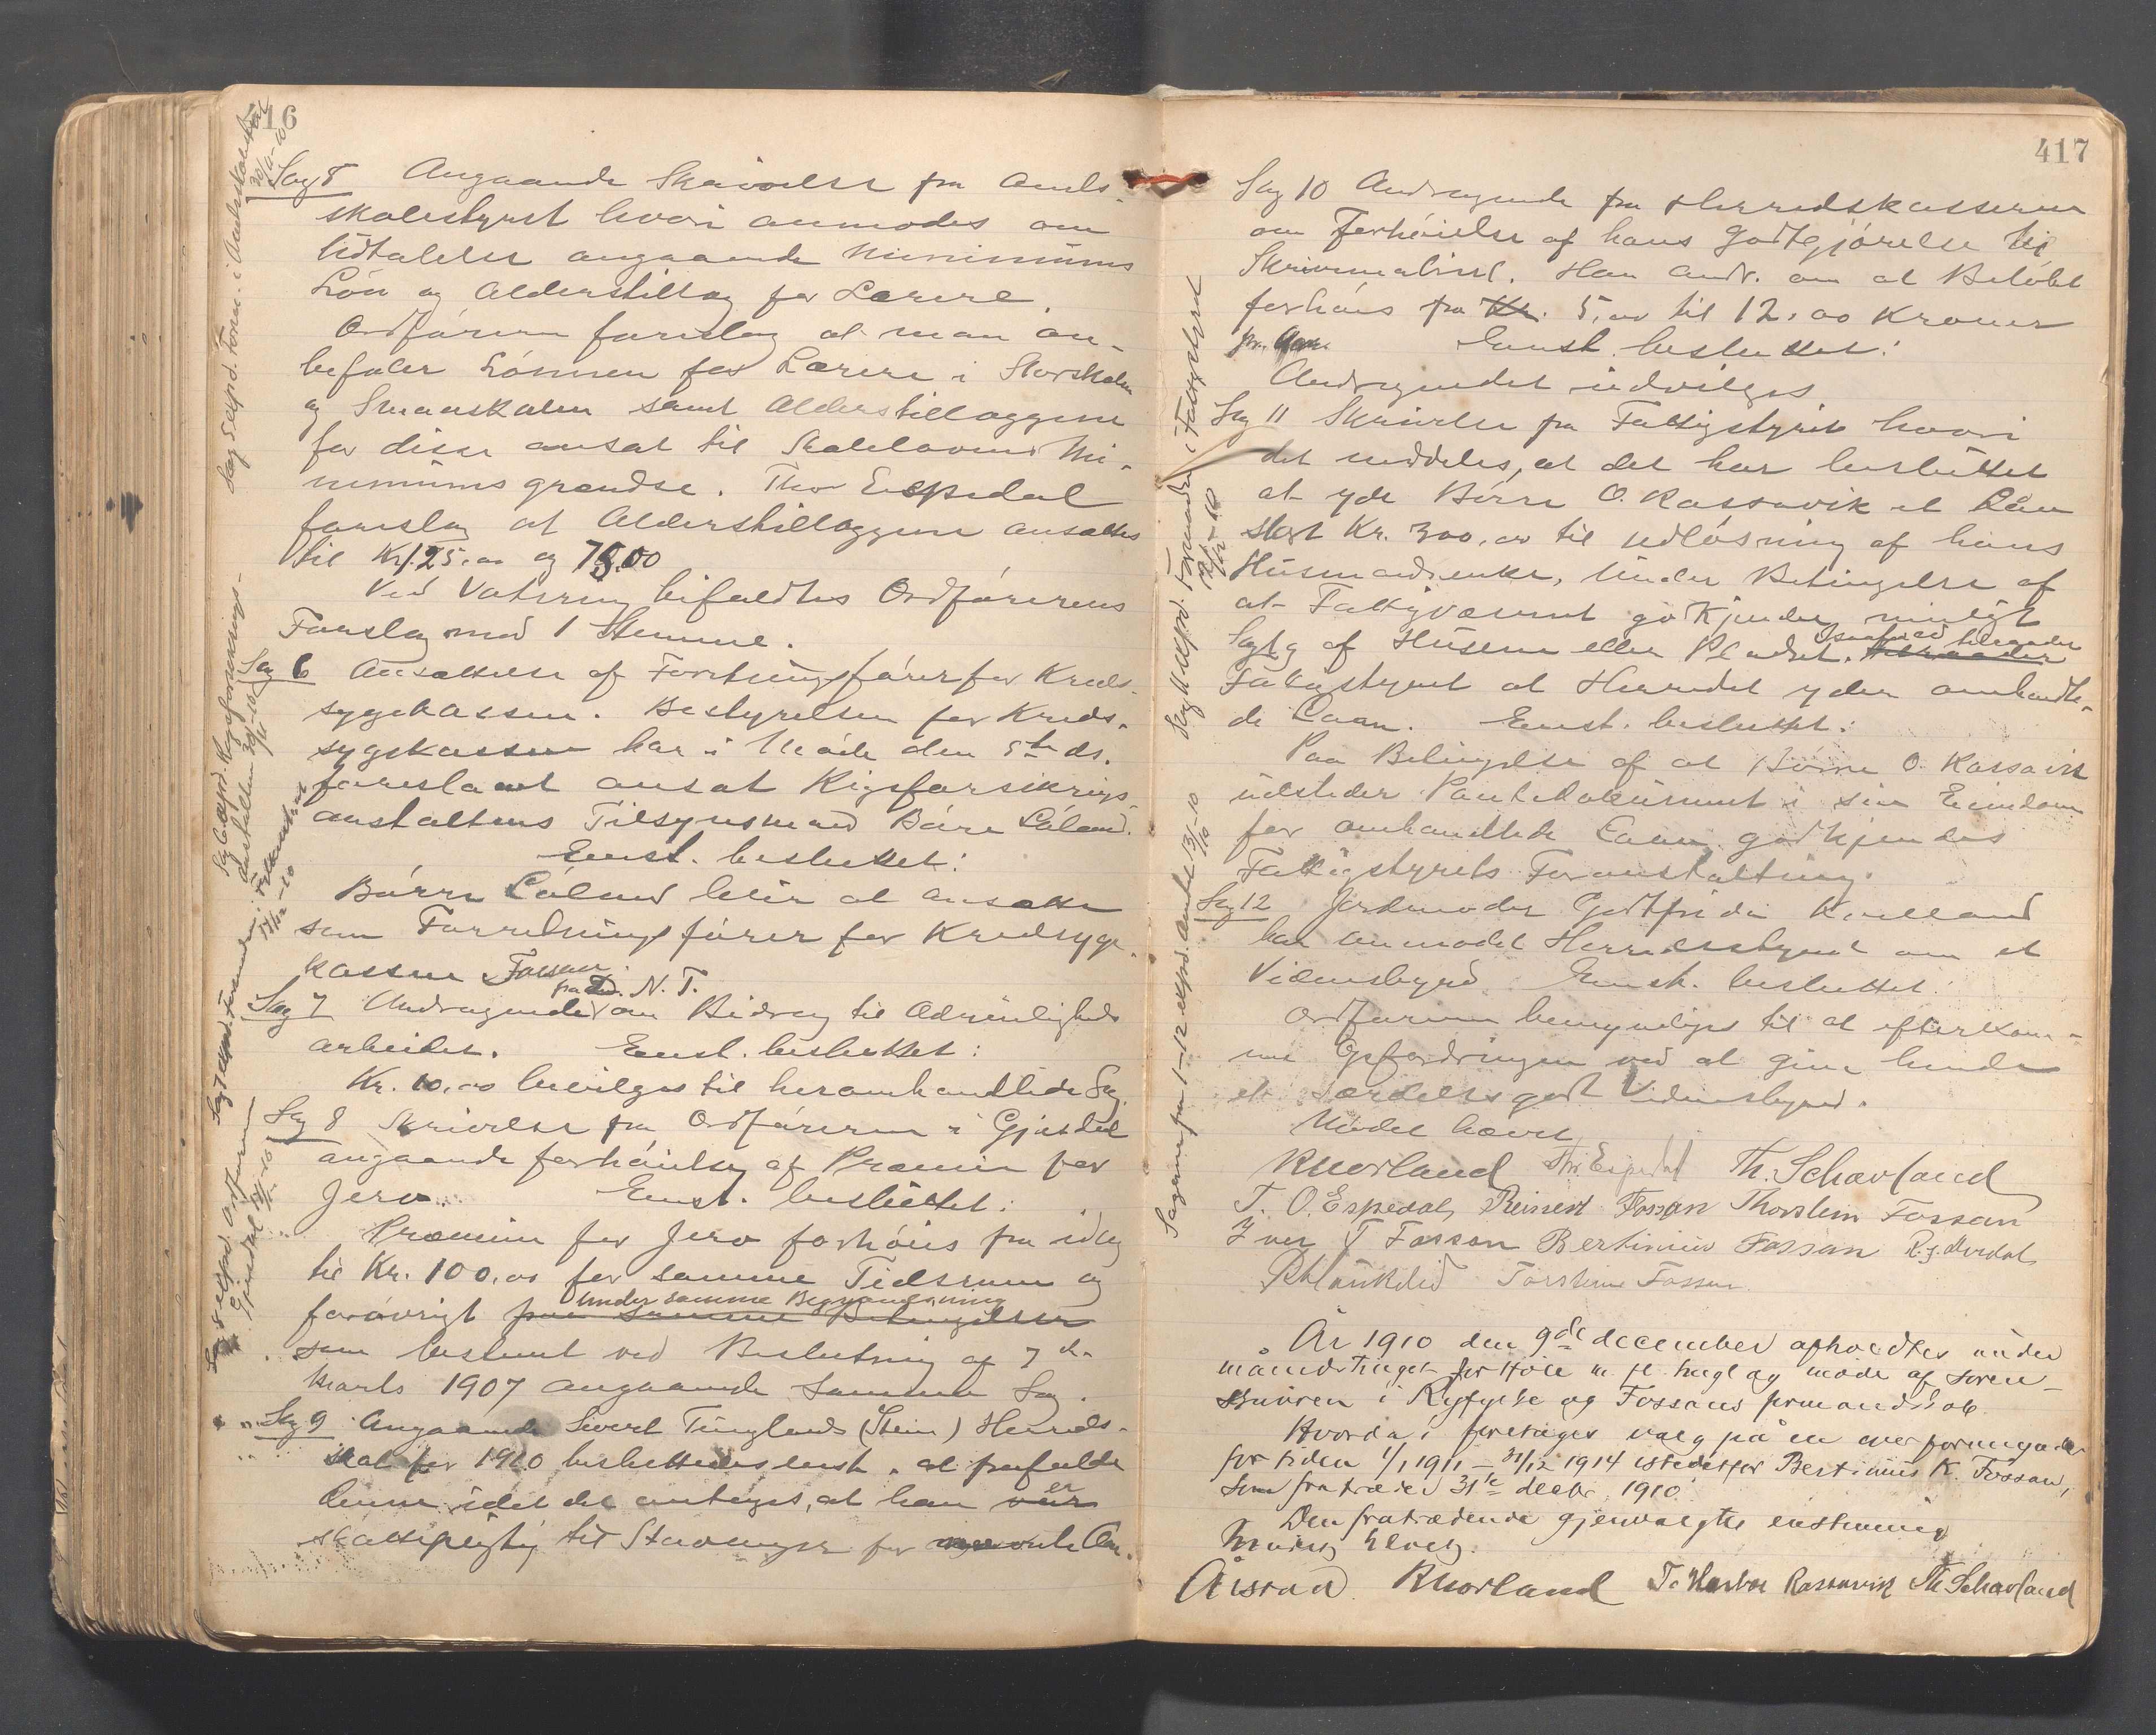 16
Sag 5 Angaaende Skrivelse fra Amts-
skolestyret hvori anmodes om
Udtalelse angaaende Minimums
Løn og Alderstillæg for Lærere.
Ordføreren foreslog at man an-
befaler Lønnen for Lærere i Storskolen
og Smaaskolen samt Alderstillæggene
for disse ansat til Skolelovens Mi-
nimumsgrændse. Thor Espedal
foreslog at Alderstillæggene ansættes
til Kr. 125,00 og 75.00
Ved Votering bifaldtes Ordførerens
Forslag med 1 Stemme.
Sag 6 Ansættelse af Forretningsfører for Kreds-
sygekassen. Bestyrelsen for Kreds-
sygekassen har i Møde den 5te ds.
foreslaaet ansat Rigsforsikrings-
anstaltens Tilsynsmand Børe Låland.
Enst. besluttet:
Børre Låland blir at ansætte
som Forretningsfører for Kredssyge-
kassen Fossan.
Sag 7 Andragende fra D. N. T. om Bidrag til Ædrueligheds
arbeidet. Enst. besluttet:
Kr. 10,00 bevilges til heromhandlede Sag.
Sag 8 Skrivelse fra Ordføreren i Gjesdal
angaaende forhøielse af Præmien for
Jerv. Enst. besluttet:
Præmien for Jerv forhøies fra idag
til Kr. 100,00 for samme Tidsrum og
forøvrigt paa samme Betingelser under samme Begrændsning
som bestemt ved Beslutning af 7de
Marts 1907 angaaende samme Sag.
Sag 9 Angaaende Sivert Tunglands (Stein) Herreds-
skat for 1910 besluttedes enst. at frafalde
denne idet det antages, at han var er
skattepligtig til Stavanger for nævnte Aar.
Sag 5 expd. Form. i Amtsskolestyret
30/11-10
Sag 6 expd. Rigsforsikrings-
anstalten 30/11-10
Sag 8 expd. Ordføreren
Gjesdal
417
Sag 10 Andragende fra Herredskasseren
om Forhøielse af hans Godtgjørelse til
Skrivemateriel. Han andr. om at Beløbet
forhøies fra Kr. 5,00 til 12,00 Kroner
pr. Aar. Enst. besluttet:
Andragendet indvilges
Sag 11 Skrivelse fra Fattigstyret hvori
det meddeles, at det har besluttet
at yde Børre O. Rassavik et Lån
stort Kr. 300,00 til udløsning af hans
Husmandsenke, under Betingelse af
at Fattigvæsenet godkjender muligt
Salg af Husene eller Pladset.
Fattigstyret at Herredet yder omhandle-
de Laan. Enst. besluttet:
Paa Betingelse af at Børre O. Rassavik
udsteder Pantedokument i sin Eiendom
for omhandlede Laan godkjendes
Fattigstyrets Foranstaltning.
Sag 12 Jordemoder Gotfrida
har anmodet Herredsstyret om et
Vidnesbyrd. Enst. besluttet:
Ordføreren bemyndiges til at efterkom-
me Opfordringen ved at give hende
et særdeles godt Vidnesbyrd.
Mødet hævet
Thor Espedal Th. Schavland
T. O. Espedal, Reinert Fossan Thorstein Fossan
Iver T Fossan Bertinius Fossan
Torstein Fossan
År 1910 den 9de december afholdtes under
månedstinget for Høle m. fl. tingl. og møde af soren-
skriveren i Ryfylke og Fossans formandskab.
Hvorda i foretages valg på en overformynder
for tiden 1/1 1911 – 31/12 1914 istedetfor Bertinius K. Fossan,
som fratræder 31te decbr. 1910
Den fratrædende gjenvalgtes enstemmig
Th. Schavland
Sag 11 expd. Formanden i Fattigstyret
Sagerne fra 1–12 expd. Amtet 13/10-10